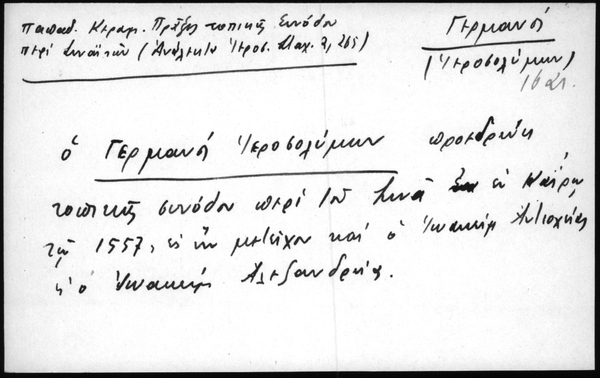 Παπαδ. Κεραμ. Πράξις τοπικῆς Συνόδου
περί Σιναϊτῶν (Ἀνάλεκτα Ἱεροσ. Σταχ. 2, 265)
Γερμανός
(Ἱεροσολύμων)
16 αι.
ὁ Γερμανός Ἱεροσολύμων προεδρεύει
τοπικῆς συνόδου περί τοῦ Σινᾶ ἐν Καΐρῳ
τῷ 1557, εἰς ἥν μετεῖχον καί ὁ Ἰωακείμ Ἀντιοχείας
κ' ὁ Ἰωακείμ Ἀλεξανδρείας.